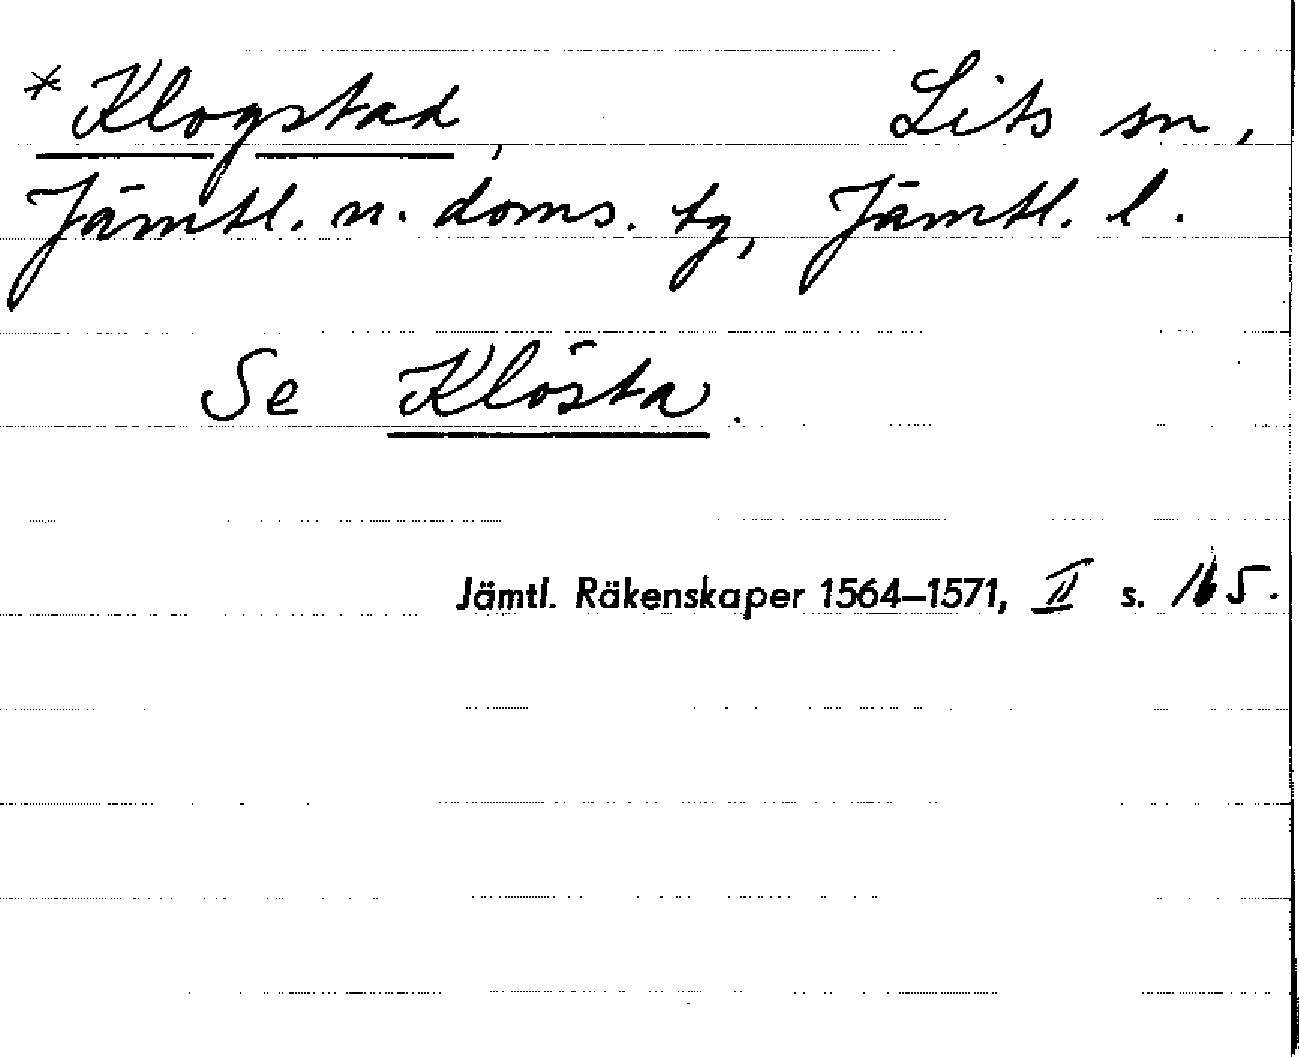 *Klogstad, Lits sn,
Jämtl. n. doms. tg, Jämtl. l.
Se Klösta.
Jämtl. Räkenskaper 1564–1571, II s. 165.